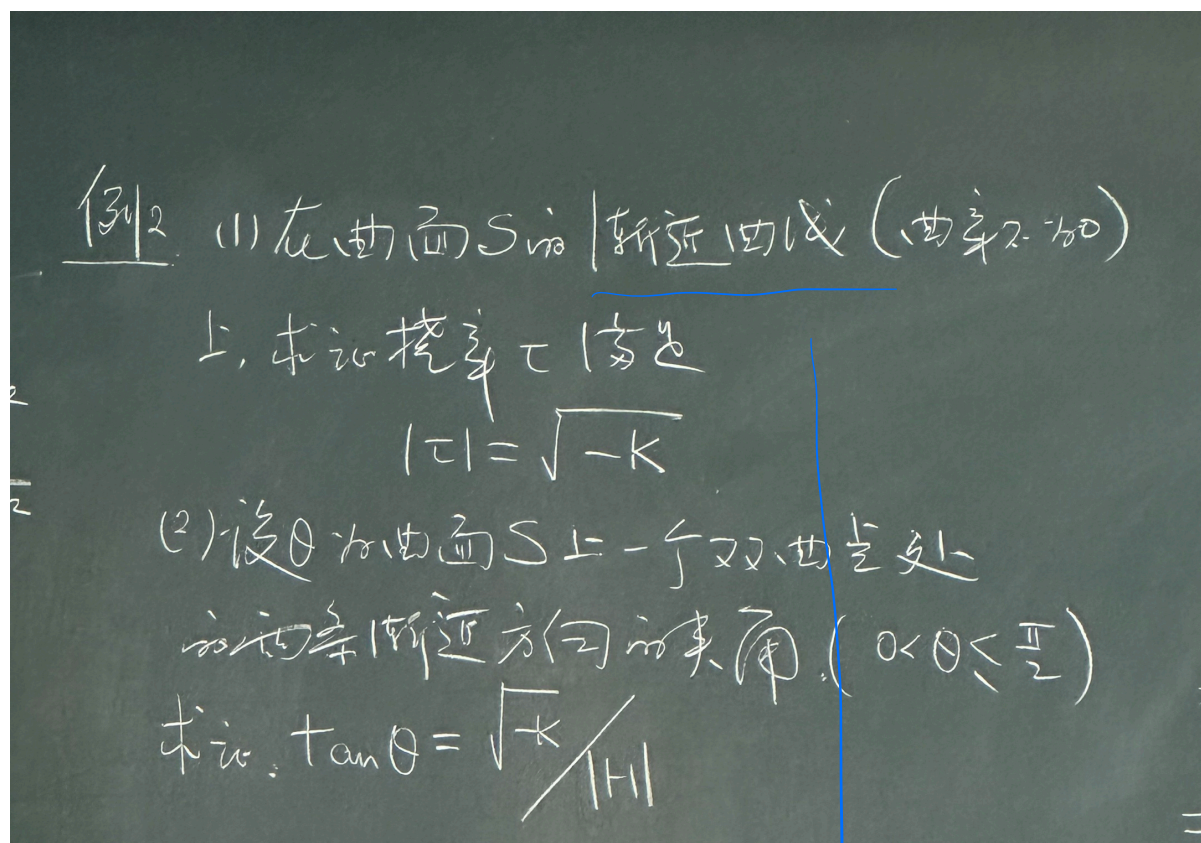 例2 (1) 在曲面S的渐近曲线(曲率不为0)
上,求证挠率τ满足
|τ| = √-K
(2) 设θ为曲面S上一个双曲点处
的两条渐近方向的夹角.(0<θ≤π/2)
求证. tanθ = √-K/|H|